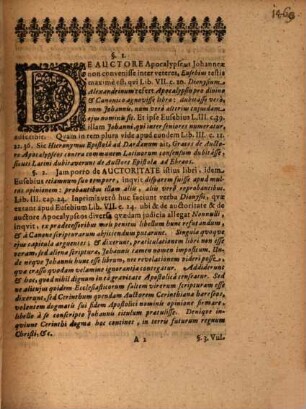 §. 1.
DE AUCTORE Apocalypseos Johanneæ
non convenisse inter veteres, Eusebius testis
maximè est, qui Lib. VII. c. 20. Dionysium
Alexandrinum refert Apocalypsin pro divino
& Canonico agnovisse libro: dubitasse verò,
num Johannis, nam verò alterius cujusdam
ejus nominis sit. Et ipse Eusebius L. III. c. 39.
illam Johanni, qui inter seniores numeratur,
Quam in rem plura vide apud eundem Lib. III. c.
Sic Hieronymus Epistolâ ad Dardanum ait, Græcos de Aucto-
re Apocalypseos contra communem Latinorum consensum dubitasse,
sicuti Latini dubitaverunt de Auctore Epistolæ ad Ebræos.
§. 2. Jam porro de AUCTORITATE istius libri, idem
Eusebius
opinionem: probantibus illam aliis, aliis verò reprobantibus.
Lib. III. cap. 24. Inprimis verò huc faciunt verba Dionysii, quæ
extant apud Eusebium Lib. VII. c. 24. ubi & de auctoritate &
de auctore Apocalypseos diversa quædam judicia allegat Nonnulli,
inquit, ex prædecessoribus meis penitus libellum hunc refutandum,
& à Canone scripturarum abjiciendum putarunt. Singula quoque
ejus capitula arguentes
veram, sed aliena scriptura, Johannis tamen nomen impositum, ille-
de neque Johannis hunc esse librum, nec revelationem videri posse,
quæ crasso quodam velamine ignorantiæ contegatur. Addiderunt
& hoc, quod nihil dignum in eo gravitate Apostolicâ censeatur. Sed
ne alicujus quidem Ecclesiasticorum saltem virorum scripturam esse
dixerunt, sed Cerinthi quendam Auctorem Cerinthianæ hæreseos,
volentem dogmati sui fidem Apostolici nominis opinione firmare,
libello à se conscripto Johannis titulum prætulisse. Denique in-
quiunt Cerinthi dogma hoc continet, in terris futurum regnum
Christi, &c.
A 2
§. 3. Vul-